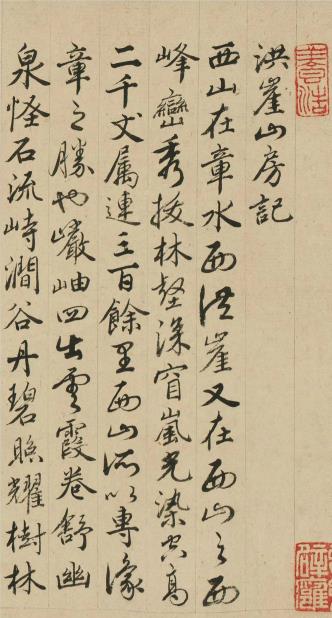 洪崖山房記
西山在章水西洪崖又在西山之西
峰巒秀拔林壑深窅嵐光染空高
二千丈属連三百餘里西山所以專豫
章之勝也巖岫四出雲霞卷舒幽
泉怪石流峙澗谷丹碧照耀樹林